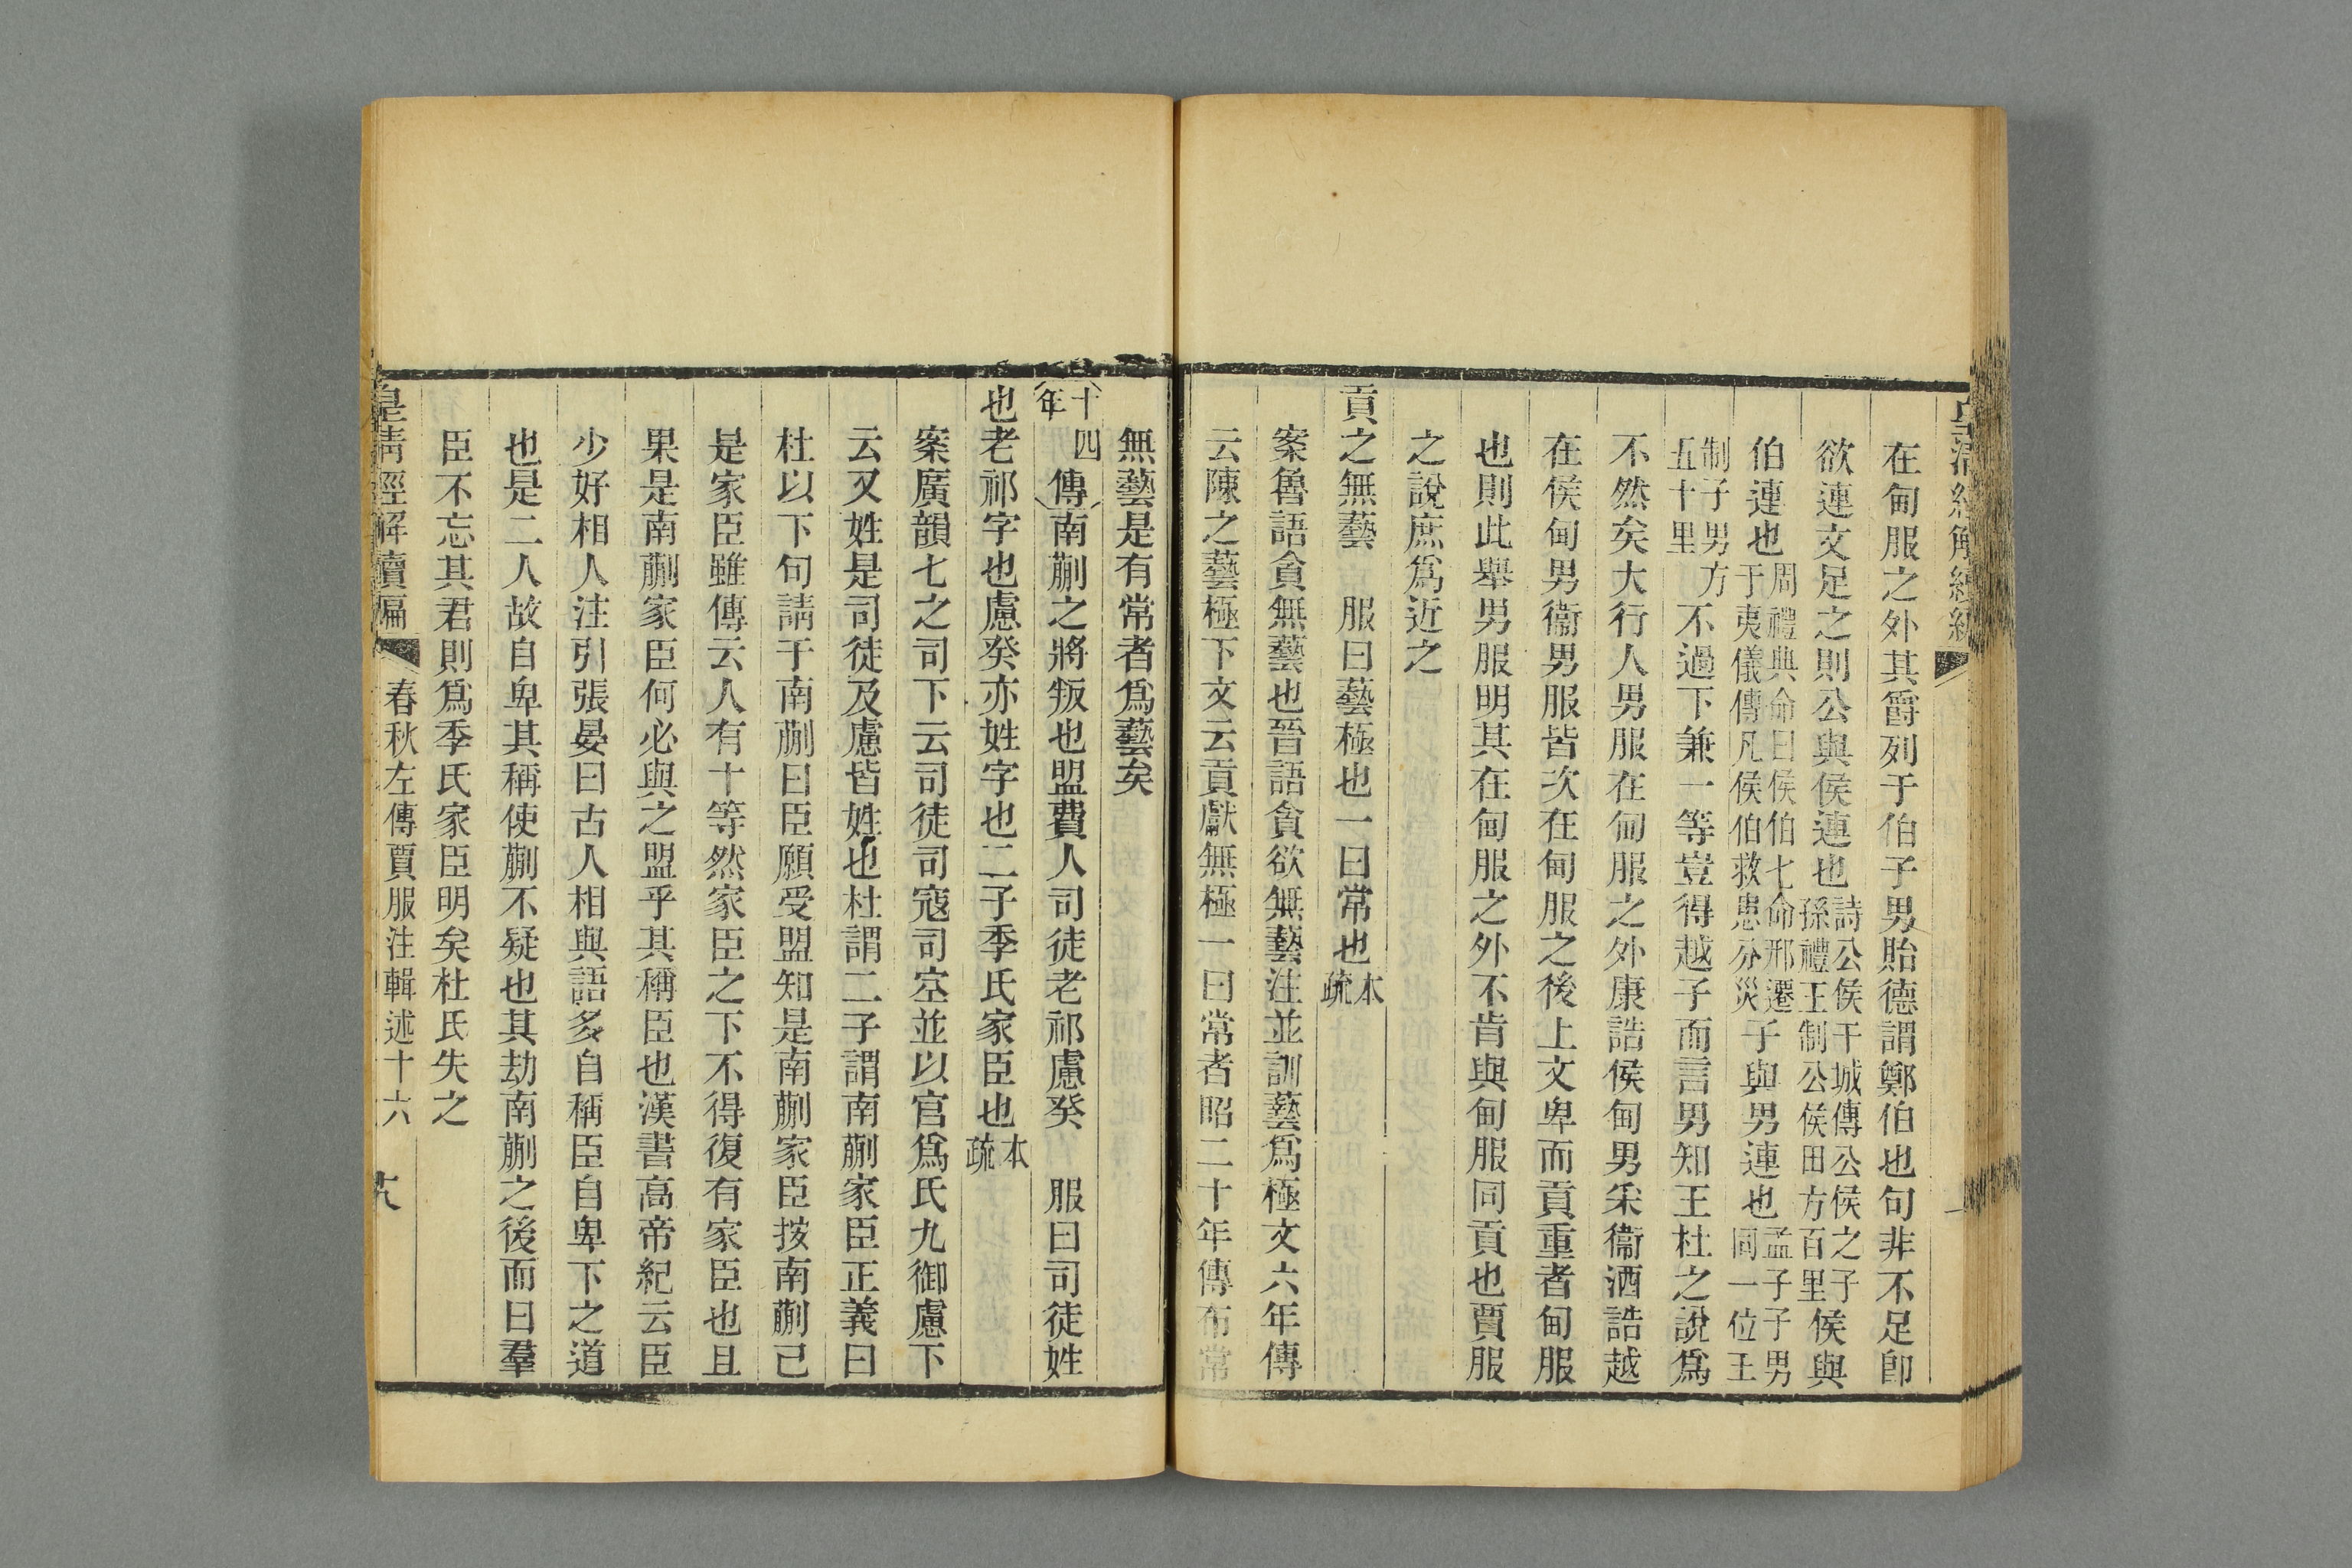 在甸服之外其爵列于伯子男貽德謂鄭伯也句非不足卽
欲連文足之則公與侯連也詩公侯干城傳公侯之子孫禮王制公侯田方百里侯與
伯連也周禮典命曰侯伯七命邢遷于夷儀傳凡侯伯救患分災子與男連也孟子子男同一位王
制子男方五十里不過下兼一等豈得越子而言男知王杜之說爲
不然矣大行人男服在甸服之外康誥侯甸男釆衞酒誥越
在侯甸男衞男服皆次在甸服之後上文卑而貢重者甸服
也則此舉男服明其在甸服之外不肯與甸服同貢也賈服
之說庶爲近之
貢之無藝　服曰藝極也一曰常也本疏
案魯語貪無藝也晉語貪欲無藝注並訓藝爲極文六年傳
云陳之藝極下文云貢獻無極一曰常者昭二十年傳布常
無藝是有常者爲藝矣
十四年傳南蒯之將叛也盟費人司徒老祁慮癸　服曰司徒姓
也老祁字也慮癸亦姓字也二子季氏家臣也本疏
案廣韻七之司下云司徒司寇司空並以官爲氏九御慮下
云又姓是司徒及慮皆姓也杜謂二子謂南蒯家臣正義曰
杜以下句請于南蒯曰臣願受盟知是南蒯家臣按南蒯已
是家臣雖傳云人有十等然家臣之下不得復有家臣也且
果是南蒯家臣何必與之盟乎其稱臣也漢書高帝紀云臣
少好相人注引張晏曰古人相與語多自稱臣自卑下之道
也是二人故自卑其稱使蒯不疑也其劫南蒯之後而曰羣
臣不忘其君則爲季氏家臣明矣杜氏失之
皇淸經解續編　春秋左傳賈服注輯述十六